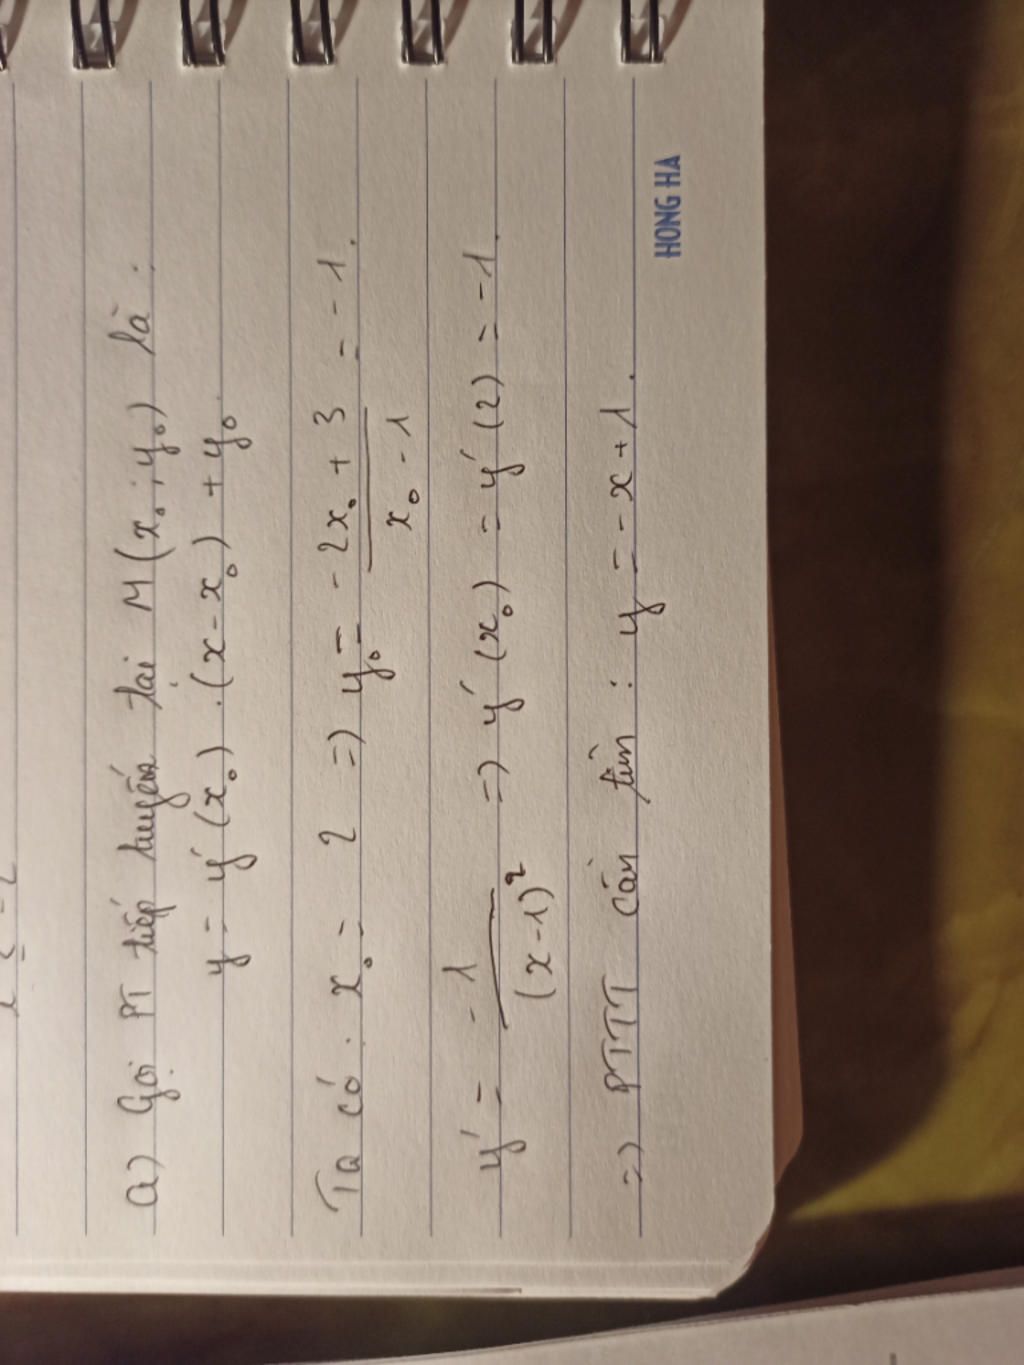 a) Gọi PT tiếp tuyến tại M(x₀; y₀) là:
y = y'(x₀).(x - x₀) + y₀
Ta có. x₀ = 2 => y₀ = (-2x₀ + 3)/(x₀ - 1) = -1.
y' = -1/(x - 1)² => y'(x₀) = y'(2) = -1.
=> PTTT cần tìm: y = -x + 1.
HONG HA